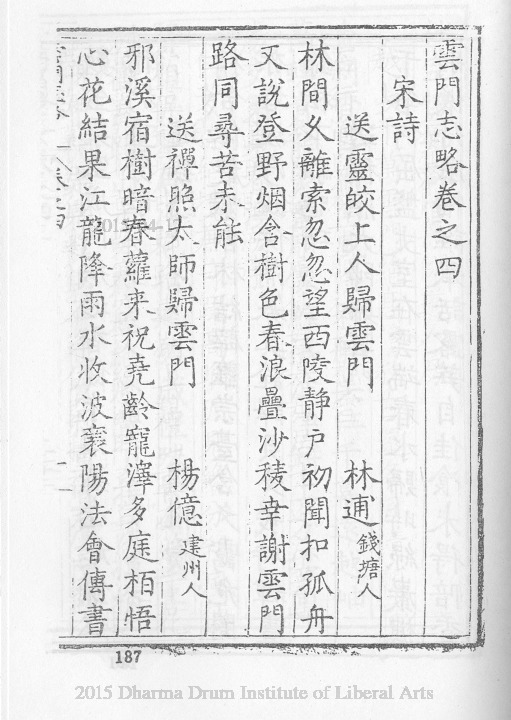 雲門志略卷之四
宋詩
送靈皎上人歸雲門 林逋 錢塘人
林間乆離索忽忽望西陵静户初聞扣孤舟
又說登野烟含樹色春浪疊沙稜幸謝雲門
路同尋苦未能
送禪照大師歸雲門 楊億 建州人
邪溪宿樹暗春蘿来祝堯齡寵澤多庭栢悟
心花結果江龍降雨水收波襄陽法會傳書
187
2015 Dharma Drum Institute of Liberal Arts